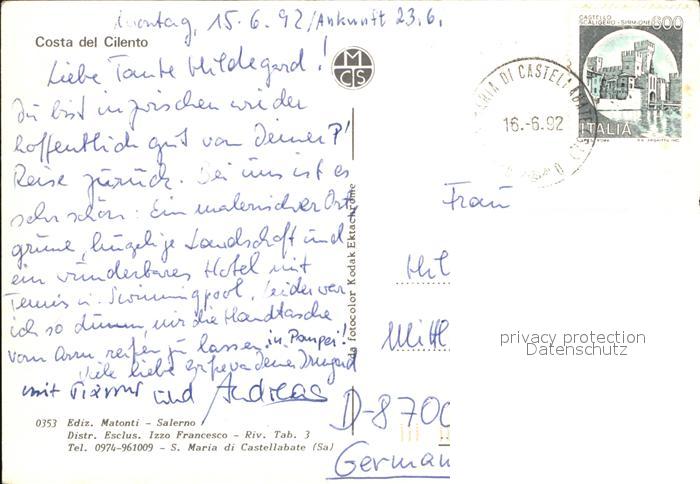 Montag, 15.6.92/Ankunft 23.6.
Costa del Cilento
Liebe Tante Hildegard!
MCS
Du bist inzwischen wieder
hoffentlich gut von Deiner P'
Reise zurück. Bei uns ist es
sehr schön: Ein malerischer Ort,
grüne, hügelige Landschaft und
ein wunderbares Hotel mit
Tennis u. Swimmingpool. Leider war
ich so dumm, mir die Handtasche
vom Arm reißen zu lassen in Pompei!
Viele liebe Deine
mit und Andreas
0353 Ediz. Matonti - Salerno
Distr. Esclus. Izzo Francesco - Riv. Tab. 3
Tel. 0974-961009 - S. Maria di Castellabate (Sa)
fotocolor Kodak Ektachrome
CASTELLO
SCALIGERO - SIRMIONE
600
ITALIA
MARIA DI CASTELLABATE
16.-6.92
Frau
Hil
Mittl
D-8700
German
privacy protection
Datenschutz